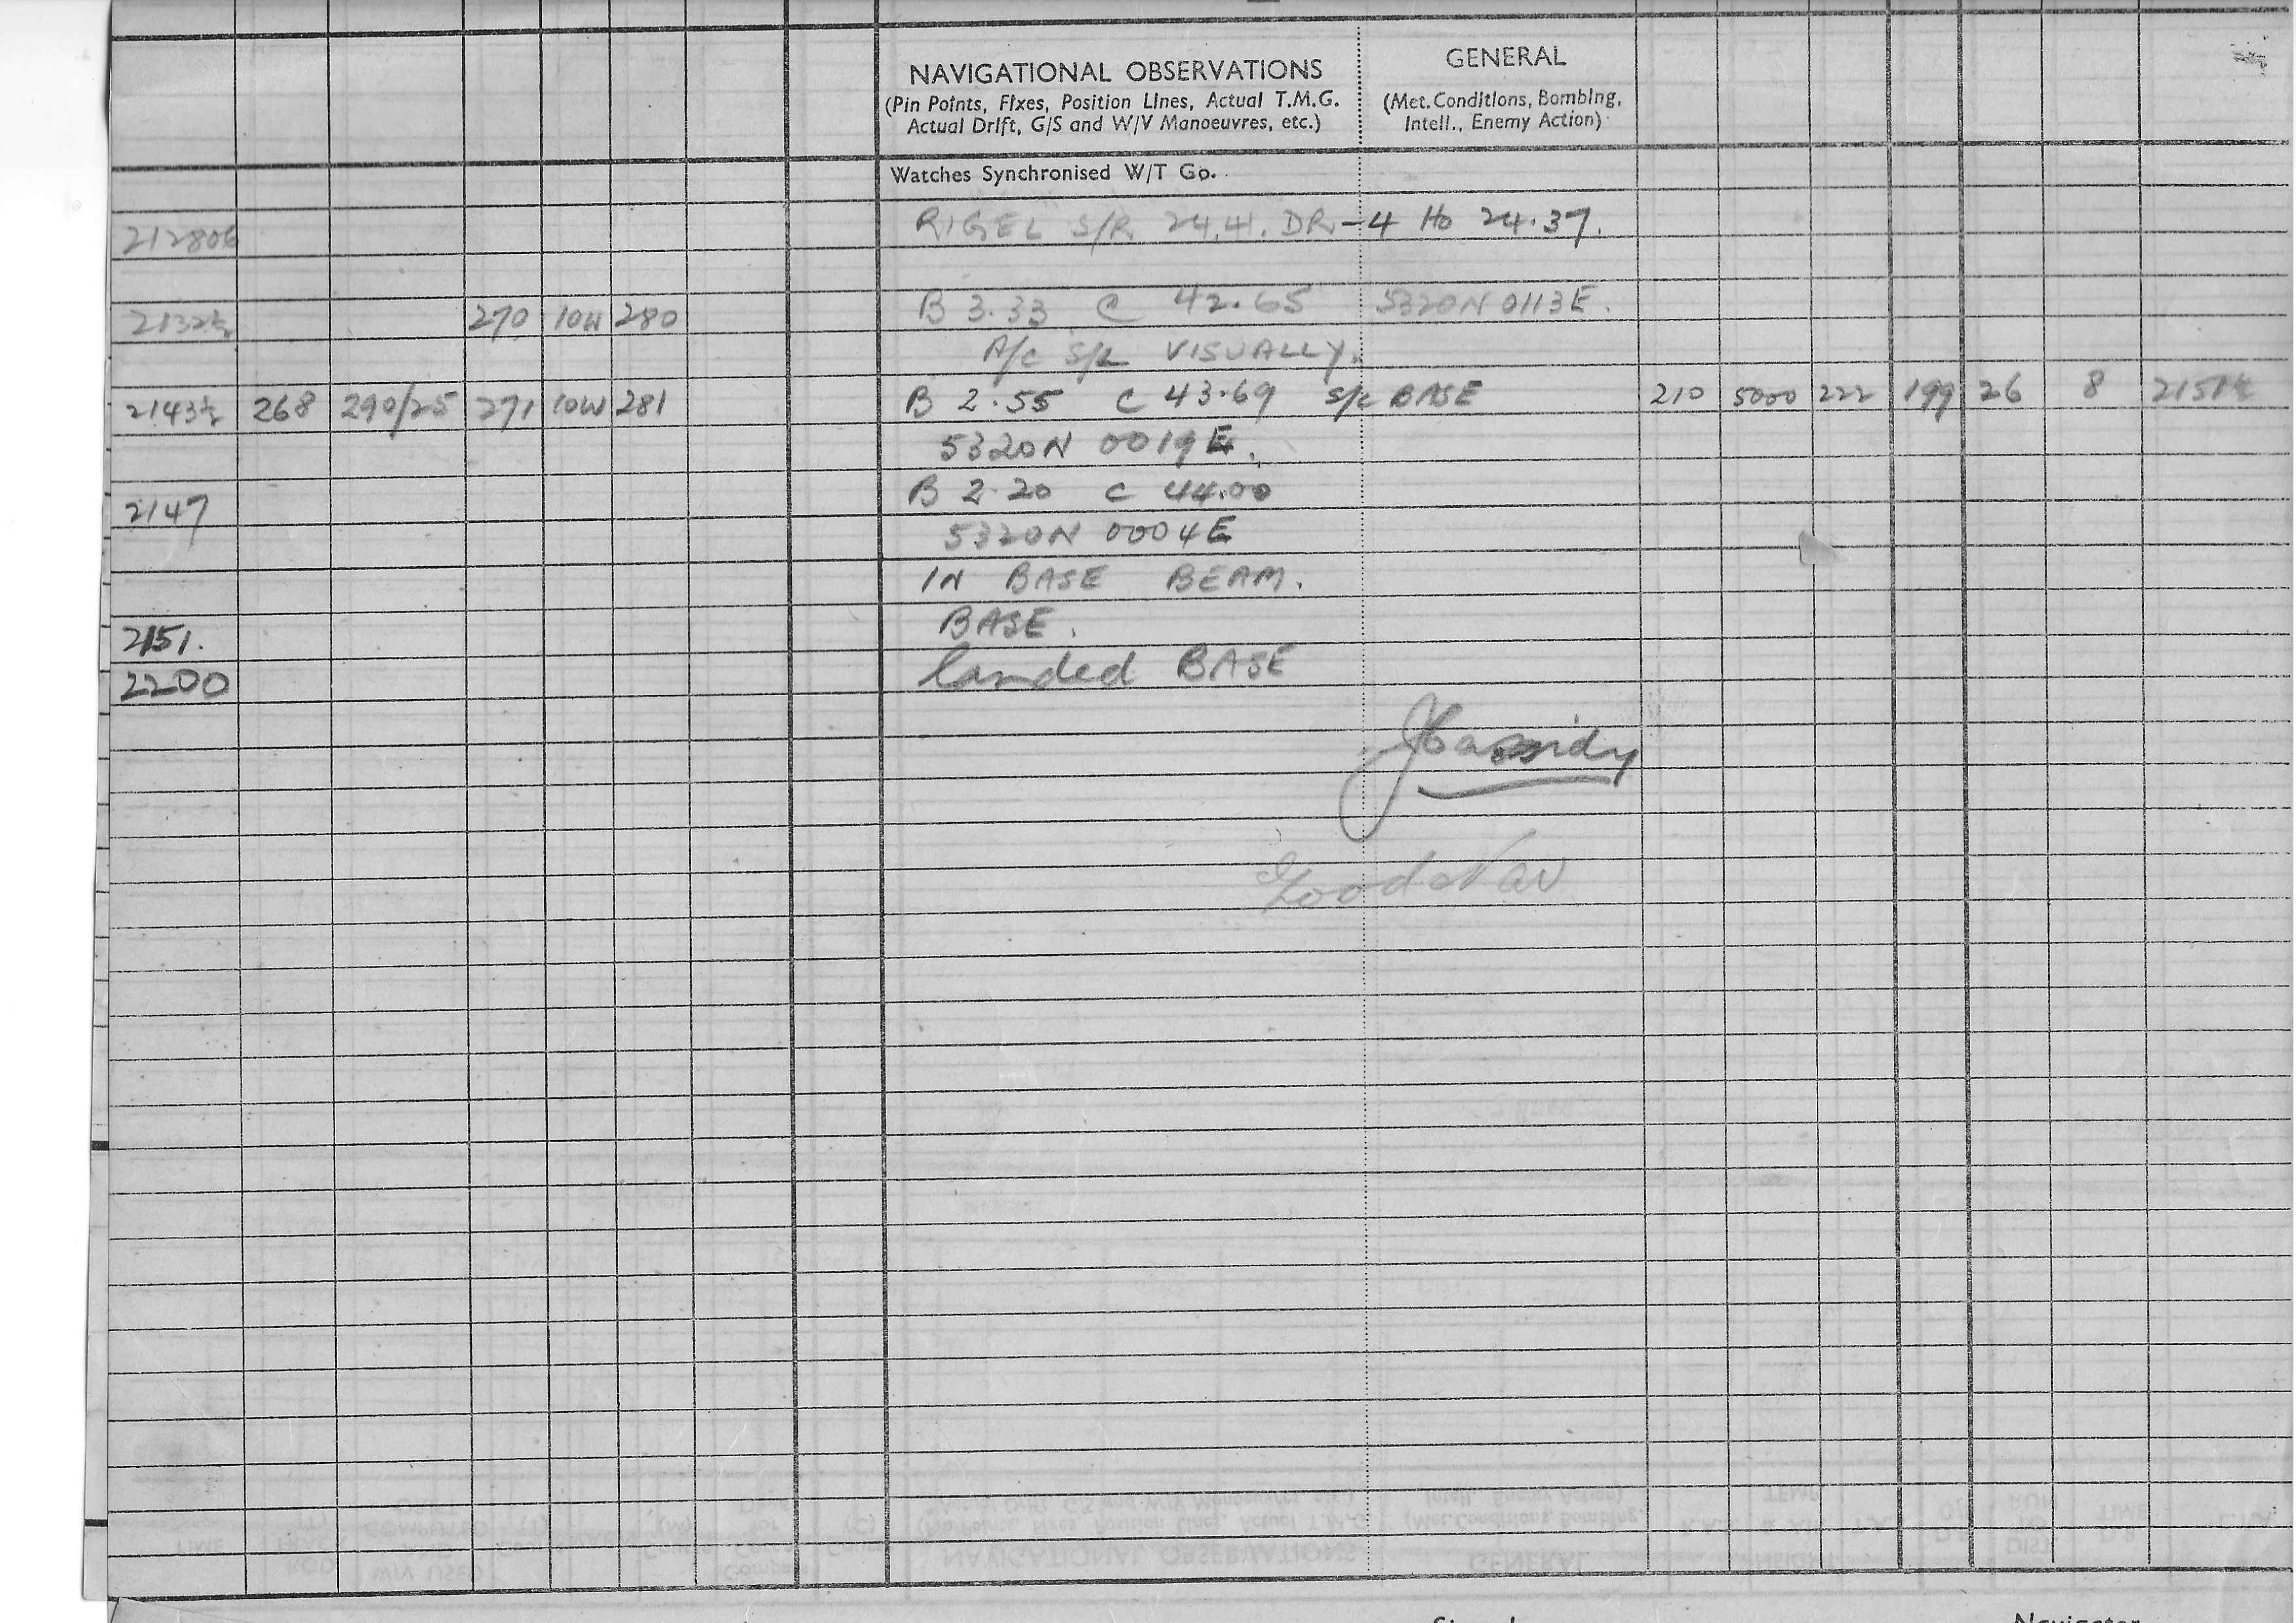 NAVIGATIONAL OBSERVATIONS
(Pin Points, Fixes, Position Lines, Actual T.M.G.
Actual Drift, G/S and W/V Manoeuvres, etc.)
GENERAL
(Met. Conditions, Bombing,
Intell., Enemy Action)
Watches Synchronised W/T Go.
212806 RIGEL S/R 24.41. DR -4 Ho 24.37.
2132½ 270 10W 280 B 3.33 C 42.65 5320N 0113E.
A/C S/L VISUALLY.
2143½ 268 290/25 271 10W 281 B 2.55 C 43.69 S/C BASE 210 5000 222 199 26 8 2151½
5320N 0019E.
2147 B 2.20 C 44.00
5320N 0004E
IN BASE BEAM.
2151. BASE.
2200 landed BASE
JCassidy
Good Nav
Navigator